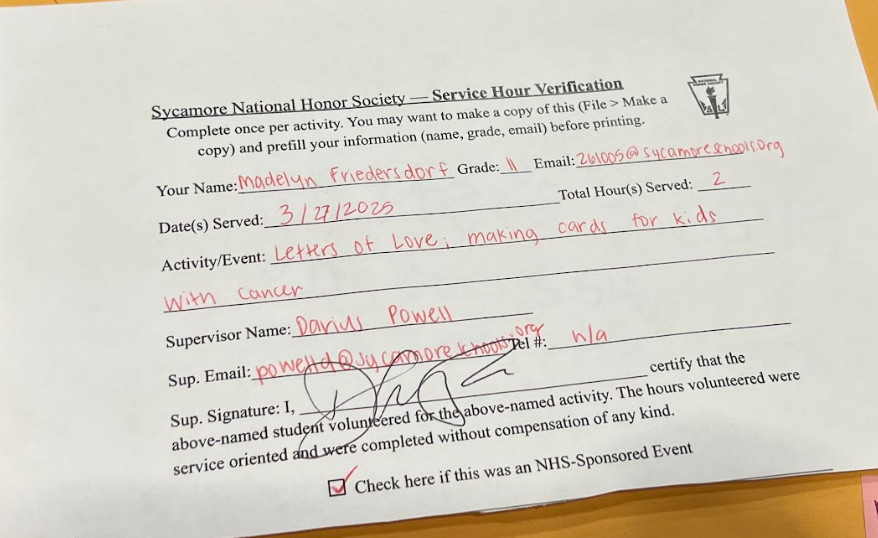 Sycamore National Honor Society — Service Hour Verification
Complete once per activity. You may want to make a copy of this (File > Make a
copy) and prefill your information (name, grade, email) before printing.
Your Name: Madelyn Friedersdorf Grade: 11 Email: 261005@sycamoreschools.org
Date(s) Served: 3/27/2025 Total Hour(s) Served: 2
Activity/Event: Letters of Love; making cards for kids
with cancer
Supervisor Name: Darius Powell
Sup. Email: powelld@sycamoreschools.org Tel #: n/a
Sup. Signature: I, certify that the
above-named student volunteered for the above-named activity. The hours volunteered were
service oriented and were completed without compensation of any kind.
Check here if this was an NHS-Sponsored Event